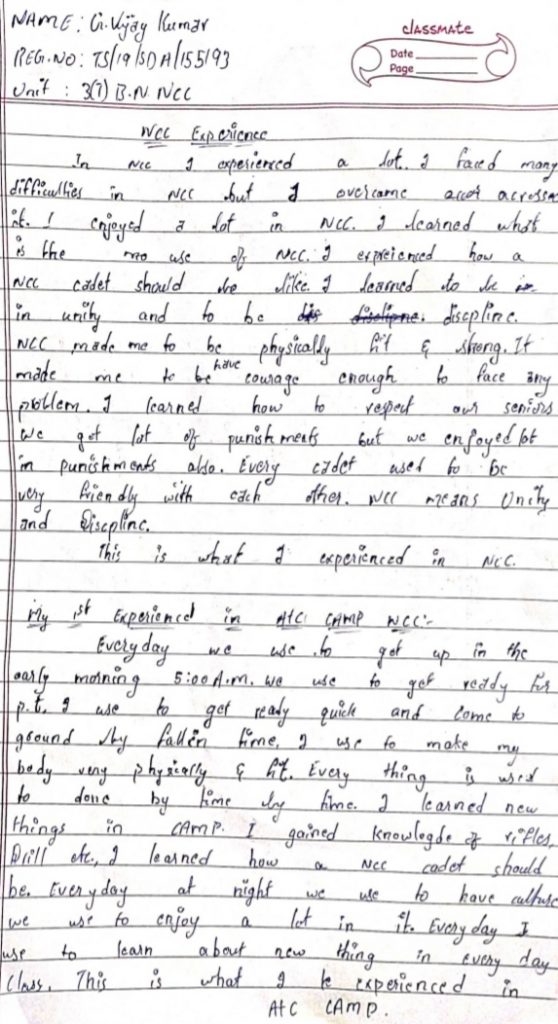 NAME: G.Vijay Kumar
REG.NO: TS/19/SDA/155193
Unit : 3(T) B.N NCC
classmate
Date
Page
NCC Experience
In NCC I experienced a lot. I faced many
difficulties in NCC but I overcame across
it. I enjoyed a lot in NCC. I learned what
is the use of NCC. I expreienced how a
NCC cadet should be like. I learned to be
in unity and to be discpline.
NCC made me to be physically fit & strong. It
made me to have courage enough to face any
problem. I learned how to respect our seniors
we get lot of punishments but we enjoyed lot
in punishments also. Every cadet used to be
very friendly with each other. NCC means Unity
and Discpline.
This is what I experienced in NCC.
My 1st Experienced in AtC CAMP NCC:-
Everyday we use to get up in the
early morning 5:00A.m. we use to get ready for
p.t. I use to get ready quick and come to
ground by fallin time. I use to make my
body very physically & fit. Every thing is used
to done by time by time. I learned new
things in CAMP. I gained knowlegde of rifles,
Drill etc., I learned how a NCC cadet should
be. Everyday at night we use to have culture
we use to enjoy a lot in it. Everyday I
use to learn about new thing in every day
Class. This is what I experienced in
AtC CAMP.